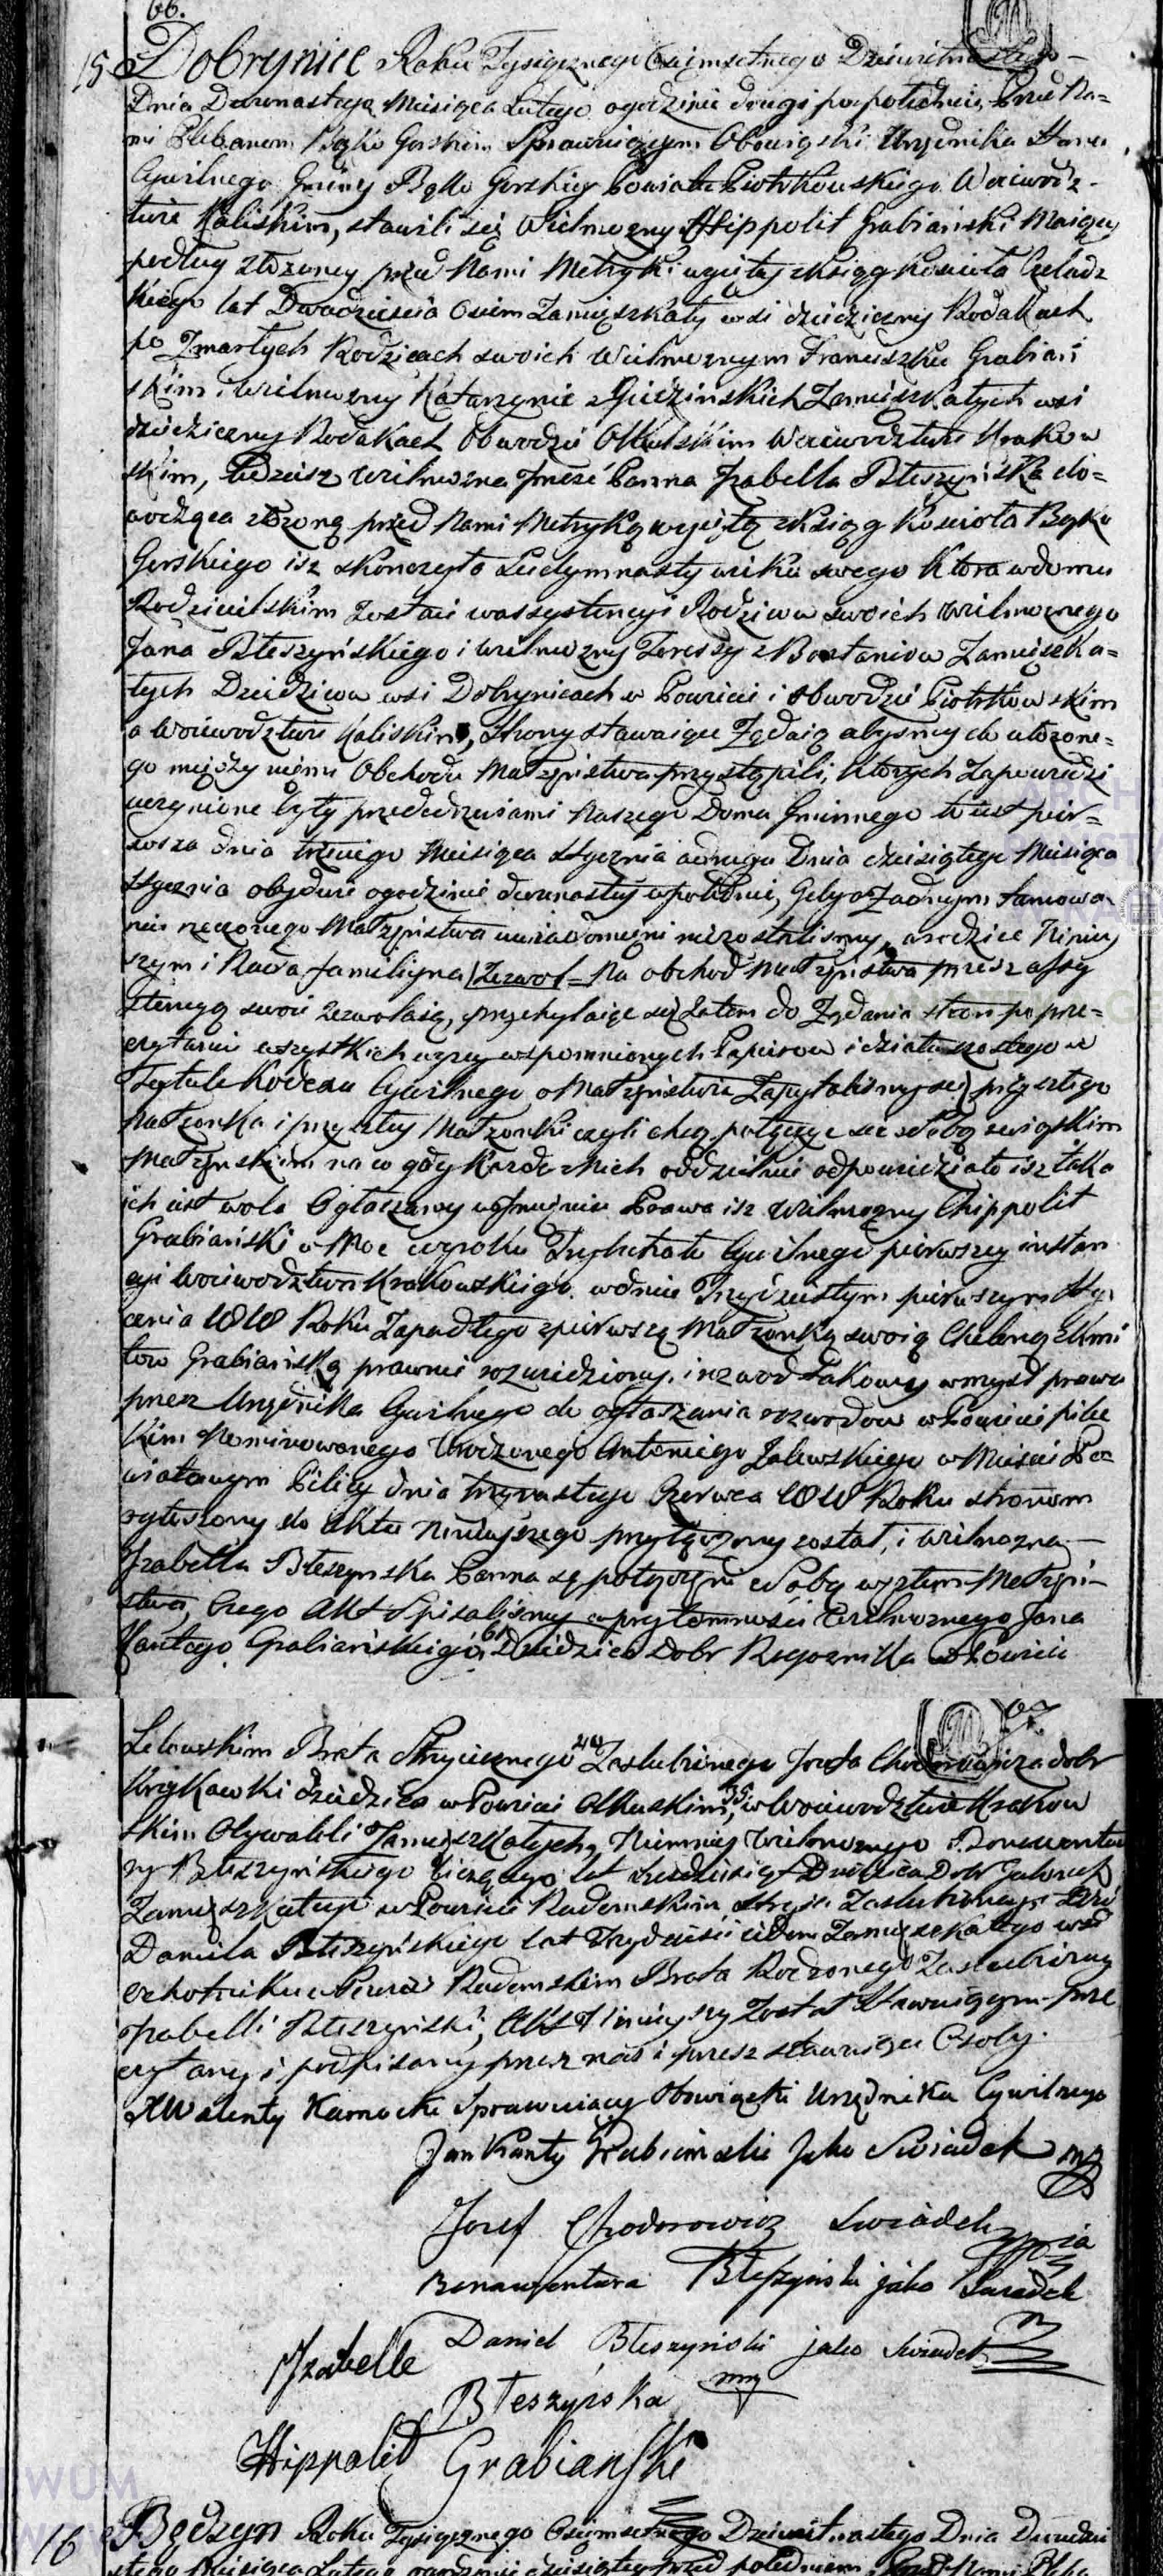 66.
15 Dobrynice Roku Tysięcznego Osiemsetnego Dziewietnastego
Dnia Dwunastego Miesiąca Lutego o godzinie drugi po południu Przed Na=
mi Plebanem Bąkowo Gorskim Sprawuiącym Obowiązki Urzędnika Stanu
Cywilnego Gminy Bąkowo Gorskiey Powiatu Piotrkowskiego Woiewodz=
twie Kaliskim, stawili się Wielmożny Hippolit Grabiański Maiący
podług złożoney przed Nami Metryki wyiętey z Ksiąg Kościoła
kiego lat Dwadziescia Osiem Zamięszkały wsi dziedziczney Rodakach
po Zmarłych Rodzicach swoich Wielmożnym Franciszku Grabiań
skim i Wielmożney Katarzynie z Zamięszkałych wsi
dziedziczney Rodakach Obwodzie Olkuskim Woiewodztwie Krakow
skim, tudziesz Wielmożna Jmość Panna Izabella Błeszyńska do=
wodząca złożoną przed Nami Metryką wyiętą z Ksiąg Kościoła Bąko
Gorskiego isz skończyła Siedymnasty wieku swego Ktora w domu
Rodzicielskim zostaie w assystencyi Rodziców swoich Wielmożnego
Jana Błeszyńskiego i Wielmożney Teressy z Zamięszka=
łych Dziedziców wsi Dobrynicach w Powiecie i Obwodzie Piotrkowskim
a Woiewodztwie Kaliskim, Strony stawaiące Żądaią abysmy do ułożone=
go między niemi Obchodu Małżeństwa przystąpili, Ktorych Zapowiedzi
uczynione były przed drzwiami Naszego Domu Gminnego to iest pier=
wsza dnia trzeciego Miesiąca Stycznia a druga Dnia dziesiątego Miesiąca
Stycznia obydwie o godzinie dwunastey w południe, Gdy o Żadnym tamowa=
niu rzeczonego Małżeństwa uwiadomieni niezostalismy, a rodzice Niniey
szym i Rada familiyna Zezwol= Na obchod Małżeństwa przez assy
stencyą swoię zezwolaią, przychylaiąc się Zatem do Żądania stron po prze=
czytaniu wszystkich wyżey wspomnionych Papierow i działu szostego w
Tytule Kodexu Cywilnego o Małżeństwie Zapytalismy się przyszłego
Małżonka i przyszłey Małżonki czyli chcą połączyć się z sobą związkiem
Małżeńskim na co gdy Każde z Nich oddzielnie odpowiedziało isz taka
ich iest wola Ogłaszamy w Imieniu Prawa isz Wielmożny Chippolit
Grabiański w Moc wyroku Trybunału Cywilnego pierwszey instan
cyi Woiewodztwa Krakowskiego w dniu Trzydziestym pierwszym Sty
cznia 1818 Roku Zapadłego z pierwszą Małżonką swoią Chelną
Grabiańską prawnie rozwiedziony, i rozwod takowy w myśl prawa
przez Urzędnika Cywilnego do ogłaszania rozwodow w Powiecie pilec
kim Nominowanego Urodzonego Antoniego Zalewskiego w Mieście Po=
wiatowym Pilicy dnia trzynastego Czerwca 1818 Roku stronom
ogłoszony do Aktu Ninieyszego przyłączony został, i Wielmożna
Izabella Błeszynska Panna są połączeni z Sobą węzłem Małżeń=
stwa, Czego Akt Spisalismy w przytomności Wielmożnego Jana
Kantego Grabiańskiego 61 Dziedzica Dobr Rogoznika w Powiecie
67.
Lelowskim Brata Stryiecznego 44 Zaslubionego Jozefa Chodorowicza dobr
Krzykawki dziedzica w Powiecie Olkuskim 35, w Woiewodztwie Krakow
skim Obywateli Zamięszkałych, Niemniey Wielmożnego Bonawentu
ry Błeszyńskiego liczącego lat Dziedzica Dobr
Zamięszkałego w Powiecie Radomskim, Stryia Zaslubioney,
Daniela Błeszyńskiego lat Trzydzieści ieden Zamięszkałego wsi
w Powiecie Radomskim Brata Rodzonego Zaslubioney
Izabelli Błeszyński, Akt Ninieyszy Został Stawaiącym prze
czytany i podpisany przez nas i przez stawaiące Osoby.
X Walenty Karnocki Sprawuiący Obowiązki Urzędnika Cywilnego
Jan Kanty Grabianski Jako Swiadek mp
Jozef Chodorowicz Swiadek
Bonawentura Błeszyński jako Swiadek
Daniel Błeszyński jako Swiadek
Izabelle
Błeszyńska
Hippolit Grabiański
16 Będzyn Roku Tysięcznego Osiemsetnego Dziewietnastego Dnia Dwudzie
stego Miesiąca Lutego o godzinie dziesiątey przed południem Przed Nami